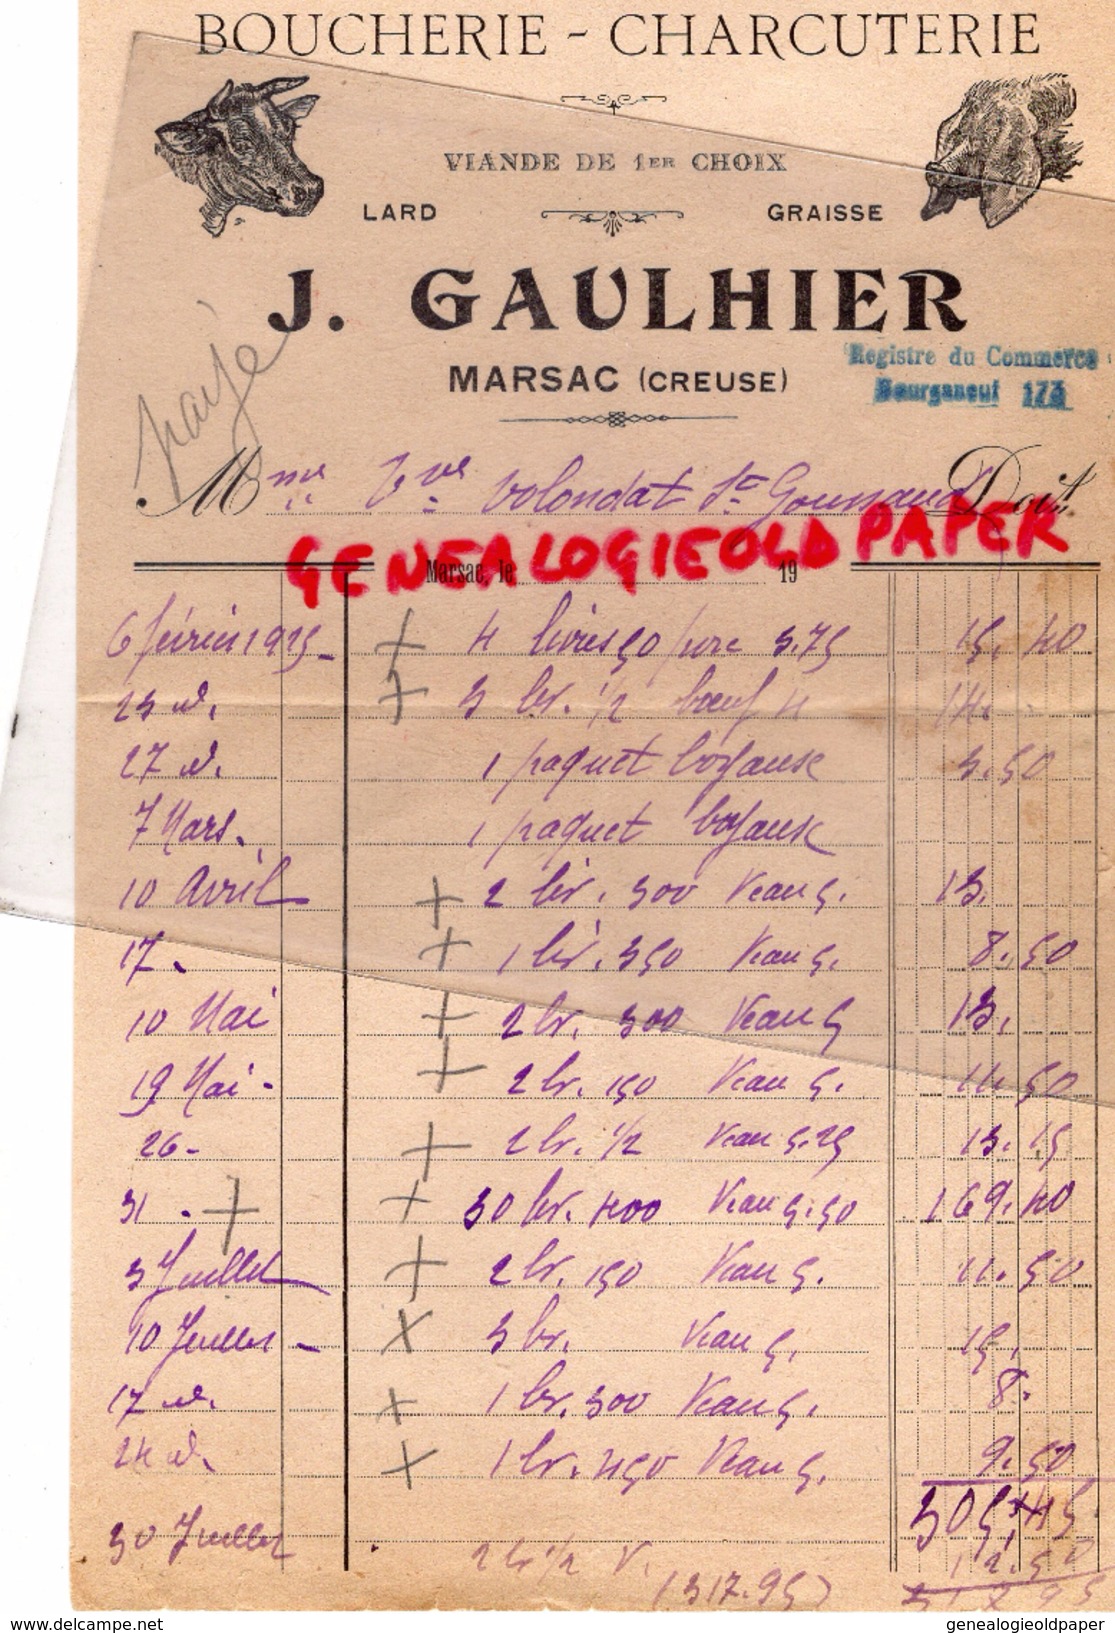 BOUCHERIE - CHARCUTERIE
VIANDE DE 1ER CHOIX
LARD GRAISSE
J. GAULHIER
MARSAC (CREUSE)
Registre du Commerce
Bourganeuf 173
payé
Mme Vve Volondat St Goussaud Doit
GENEALOGIEOLDPAPER
Marsac, le 19
6 février 1925 - 4 livres 50 porc 3.75 15. 40
23 d. 3 lir. 1/2 boeuf 4 14.
27 d. 1 paquet boyaux 3.50
7 Mars. 1 paquet boyaux
10 Avril 2 lir. 300 Veau 5. 13.
17. 1 lir. 350 Veau 5. 8. 50
10 Mai 2 lir. 300 Veau 5 13.
19 Mai - 2 lir. 150 Veau 5. 11. 50
26 - 2 lir. 1/2 Veau 5.25 13. 15
31 . 30 lir. 400 Veau 5.50 169. 40
3 Juillet 2 lir. 150 Veau 5. 11. 50
10 Juillet - 3 lir. Veau 5. 15.
17 d. 1 lir. 300 Veau 5. 8.
24 d. 1 lir. 450 Veau 5. 9. 50
305,45
30 Juillet 2 l 1/2 V. 12.50
(317.95) 317 95
genealogieoldpaper